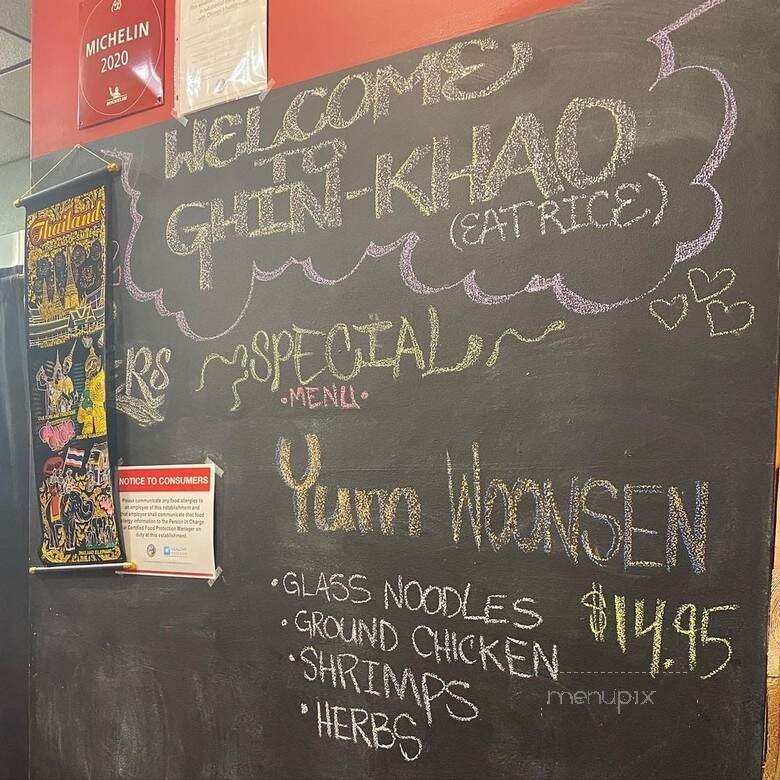 MICHELIN
2020
MICHELIN
WELCOME
TO
GHIN-KHAO
(EAT RICE)
Thailand
RS
SPECIAL
•MENU•
Yum WOONSEN
$14.95
•GLASS NOODLES
•GROUND CHICKEN
•SHRIMPS
•HERBS
NOTICE TO CONSUMERS
Please communicate any food allergies to
an employee of this establishment and
employee shall communicate that food
allergy information to the Person in Charge
Certified Food Protection Manager on
duty at this establishment.
menupix